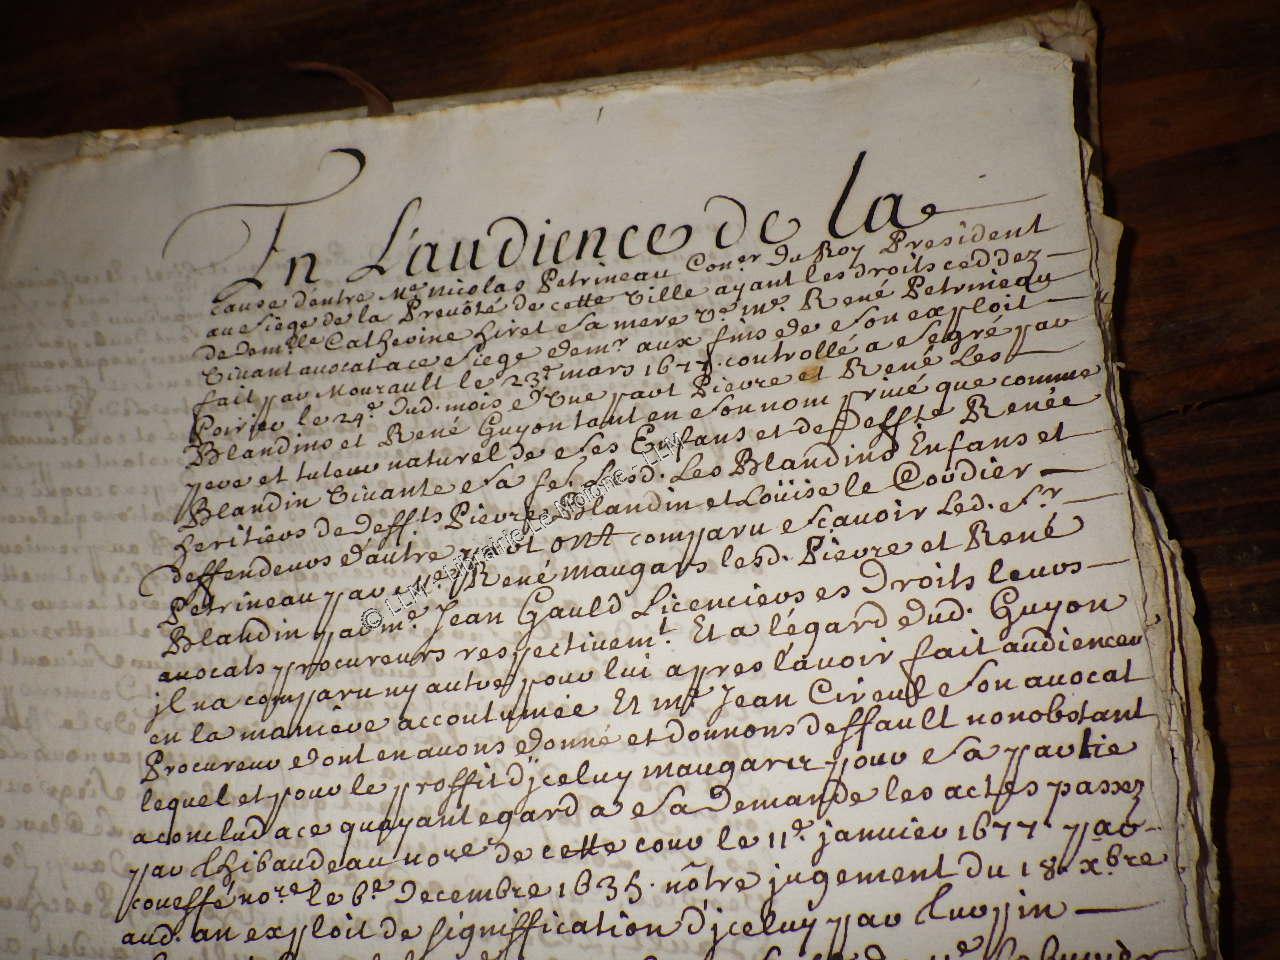 En L'audience de la
cause d'entre Me. Nicolas Petrineau Coner du Roy President
au siège de la Prevôté de cette Ville ayant les droits ceddez
de damlle Catherine Hiret sa mere ve. Me. René Petrineau
Vivant avocat a ce siege demr aux fins de son exploit
fait par Mourault le 23e mars 1677. controllé a Segré par
Poirier le 24e dud. mois d'Une part Pierre et René Les
Blandins et René Guyon tant en son nom privé que comme
pere et tuteur naturel de ses Enfans et de Deffte Renée
Blandin Vivante sa fe. Lesd. Les Blandins Enfans et
heritiers de deffts Pierre Blandin et Loüise le Coudier
deffendeurs d'autre part ont comparu sçavoir led. Sr
Petrineau par Me. René maugars lesd. Pierre et René
Blandin par me. Jean Gauld Licencieus es Droits leurs
avocats procureurs respectivemt. Et a l'égard dud. Guyon
jl n'a comparu ny autre pour lui apres l'avoir fait audiencer
en la maniêre accoutumée Et me. Jean Cireul son avocat
Procureur dont en avons donné et donnons deffault nonobstant
lequel et pour le proffit d'jceluy maugars pour sa partie
a conclud a ce qu'ayant egard a sa Demande les actes passez
par Thibaudeau nore de cette cour le 11e. janvier 1677. par
coueffé nore. le 6e. Decembre 1635. nôtre jugement du 18. xbre
aud. an exploit de signiffication d'jceluy par Turpin
© LLM - Librairie Le Moigne - LLM